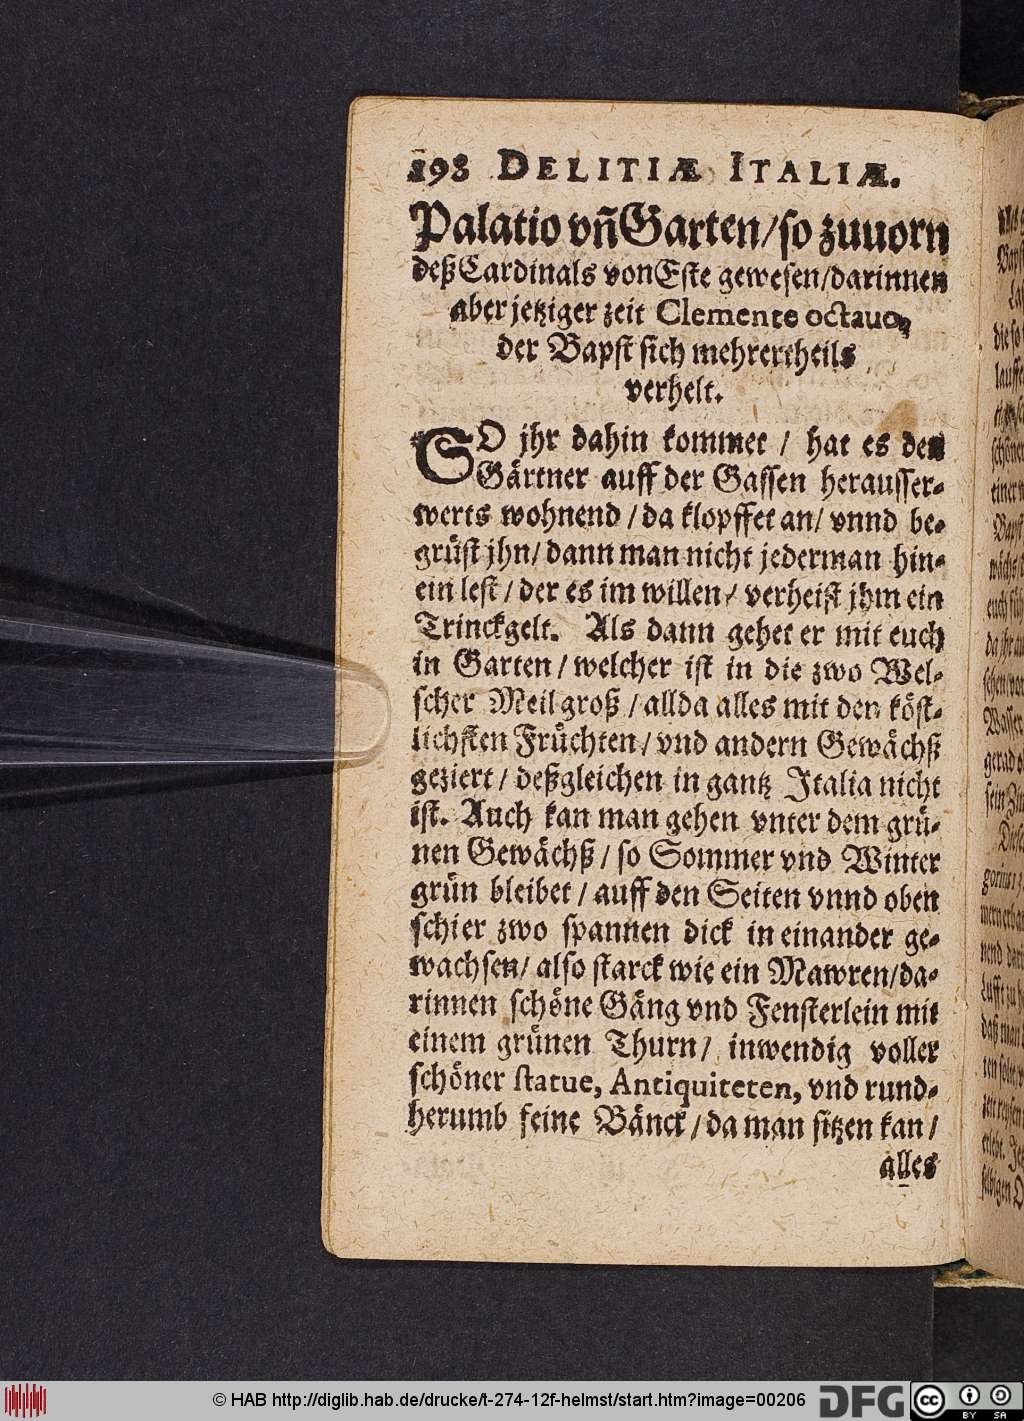 198 DELITIÆ ITALIÆ.
Palatio vñ Garten/so zuuorn
deß Cardinals von Este gewesen/darinnen
aber jetziger zeit Clemente octauo,
der Bapst sich mehrertheils
verhelt.
SO jhr dahin kommet / hat es den
Gärtner auff der Gassen herausser-
werts wohnend / da klopffet an/ vnnd be-
grüst jhn/ dann man nicht jederman hin-
ein lest / der es im willen/ verheist jhm ein
Trinckgelt. Als dann gehet er mit euch
in Garten / welcher ist in die zwo Wel-
scher Meil groß / allda alles mit den köst-
lichsten Früchten/ vnd andern Gewächß
geziert / deßgleichen in gantz Italia nicht
ist. Auch kan man gehen vnter dem grü-
nen Gewächß / so Sommer vnd Winter
grün bleibet / auff den Seiten vnnd oben
schier zwo spannen dick in einander ge-
wachsen/ also starck wie ein Mawren/da-
rinnen schöne Gäng vnd Fensterlein mit
einem grünen Thurn/ inwendig voller
schöner statue, Antiquiteten, vnd rund-
herumb feine Bänck / da man sitzen kan /
alles
© HAB http://diglib.hab.de/drucke/t-274-12f-helmst/start.htm?image=00206
DFG
cc
BY SA